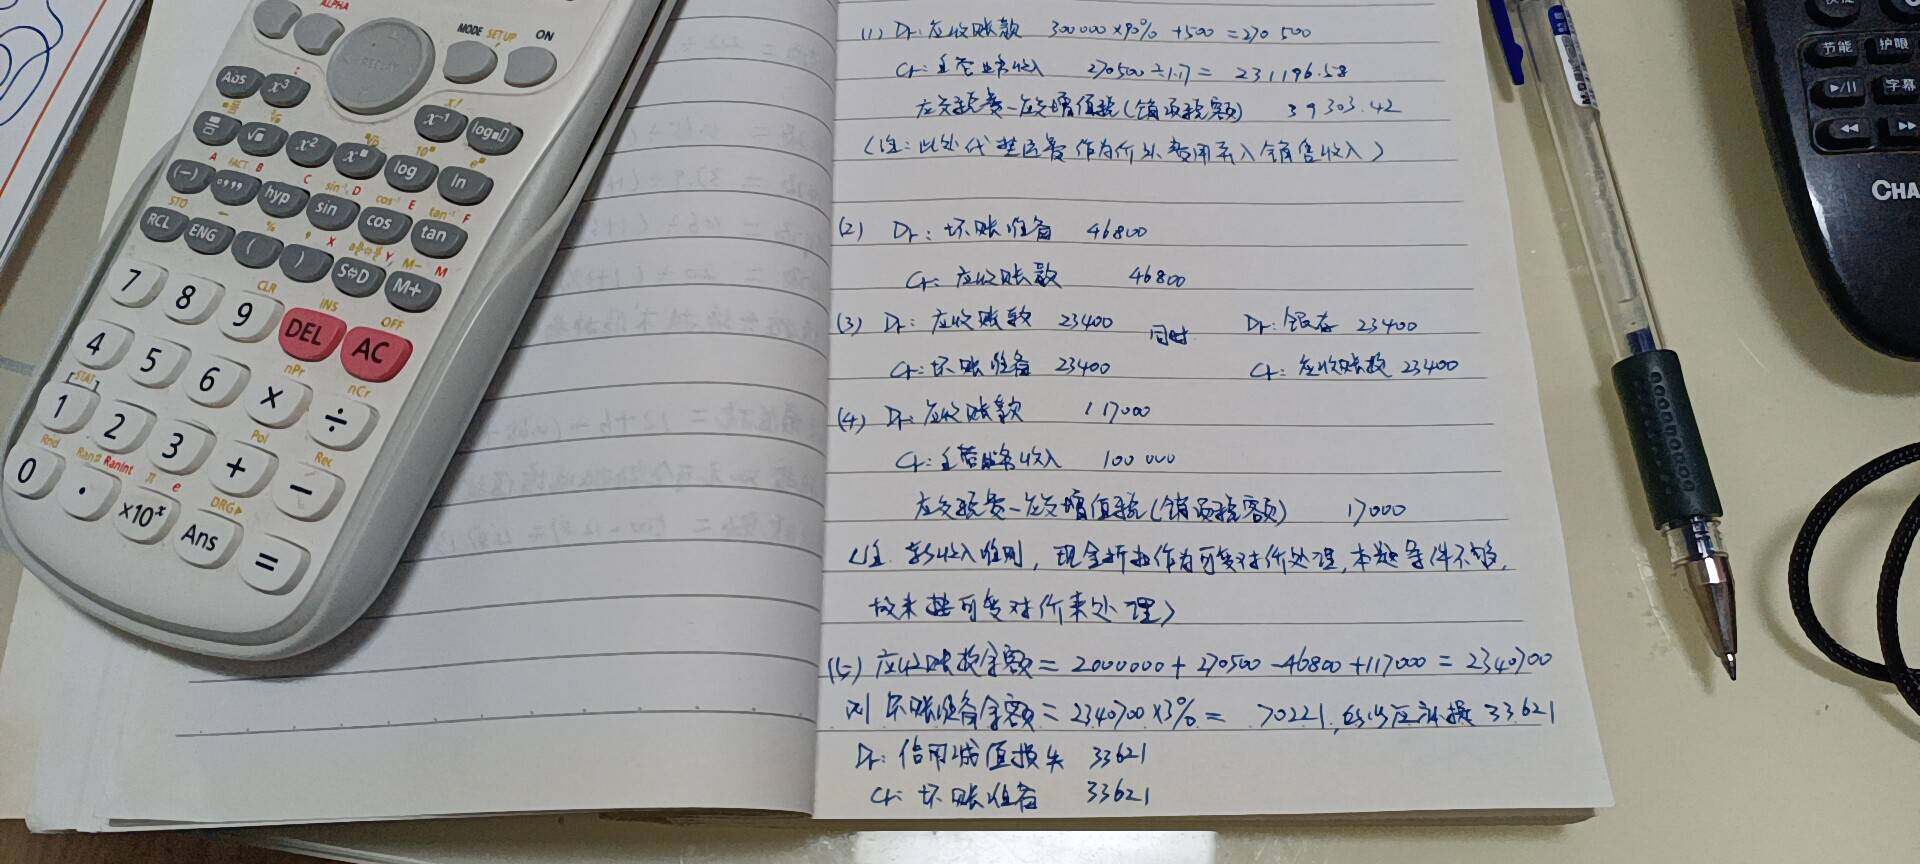 ALPHA
MODE SETUP ON
REPLAY
Abs x³ x⁻¹ log
x² log ln
(−) hyp sin cos tan
RCL ENG ( ) S⇔D M+
7 8 9 DEL AC
4 5 6 × ÷
1 2 3 + −
0 . ×10ˣ Ans =
(1) Dr: 应收账款 300000×90% +500 =270 500
Cr: 主营业务收入 270500÷1.17= 231196.58
应交税费—应交增值税(销项税额) 39303.42
(注:此处代垫运费作为价外费用系入销售收入)
(2) Dr: 坏账准备 46800
Cr: 应收账款 46800
(3) Dr: 应收账款 23400 同时 Dr: 银存 23400
Cr: 坏账准备 23400 Cr: 应收账款 23400
(4) Dr: 应收账款 117000
Cr: 主营业务收入 100 000
应交税费—应交增值税(销项税额) 17000
(注: 新收入准则, 现金折扣作为可变对价处理,本题条件不够,
故未按可变对价来处理)
(5) 应收账款余额= 2000000+270500-46800+117000=2340700
则坏账准备余额=2340700×3%= 70221, 补提 33621
Dr: 信用减值损失 33621
Cr: 坏账准备 33621
节能 护眼
字幕
CHA